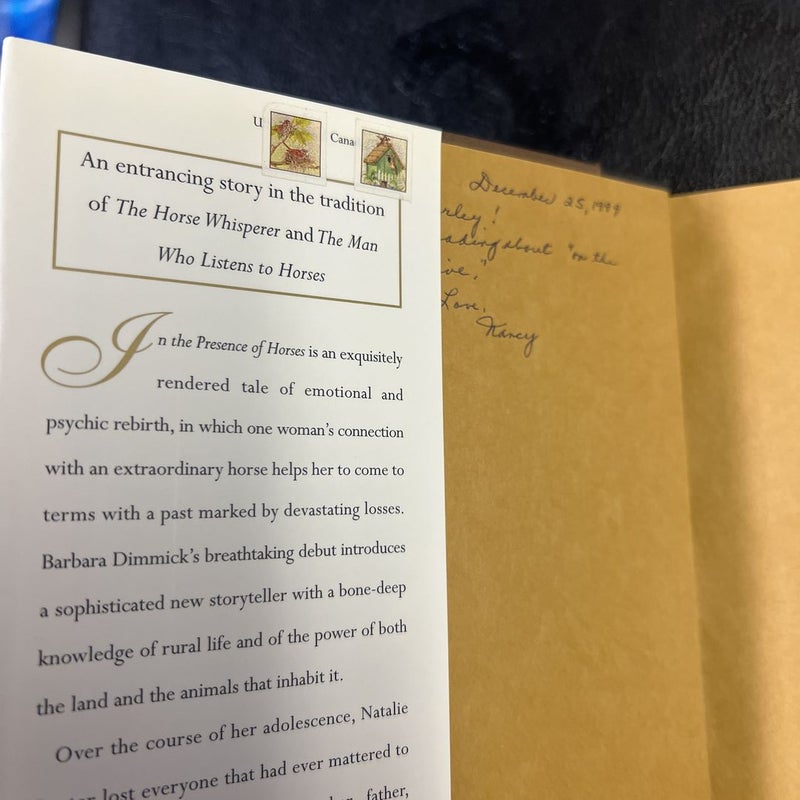 U
Cana
An entrancing story in the tradition
of The Horse Whisperer and The Man
Who Listens to Horses
In the Presence of Horses is an exquisitely
rendered tale of emotional and
psychic rebirth, in which one woman's connection
with an extraordinary horse helps her to come to
terms with a past marked by devastating losses.
Barbara Dimmick's breathtaking debut introduces
a sophisticated new storyteller with a bone-deep
knowledge of rural life and of the power of both
the land and the animals that inhabit it.
Over the course of her adolescence, Natalie
lost everyone that had ever mattered to
father,
December 25, 1999
rley!
ading about "on the
ive,"
Love,
Nancy